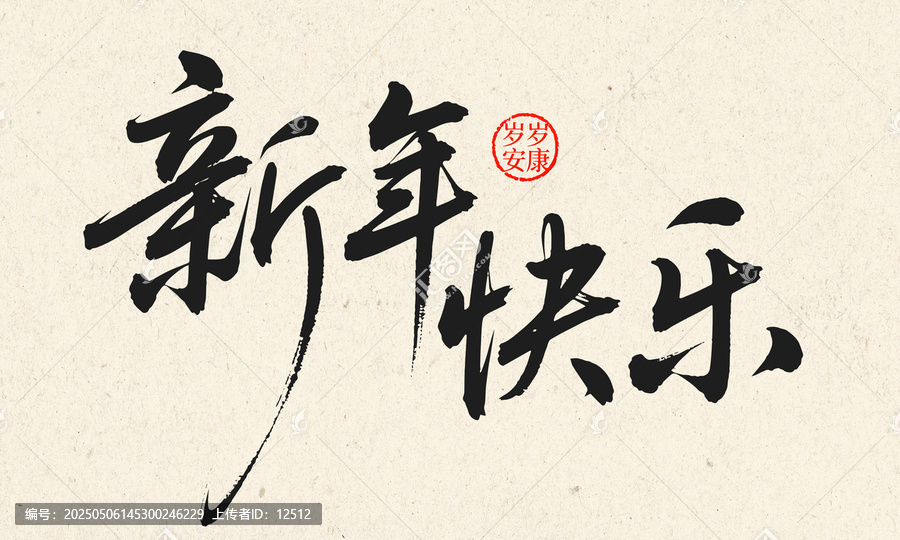 新年快乐
岁岁
安康
编号：20250506145300246229 上传者ID：12512